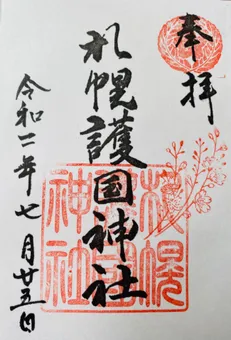 奉拝
札幌護国神社
令和二年七月廿五日
札幌護国神社